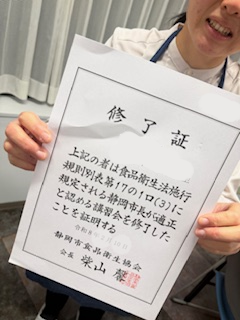 修了証
上記の者は食品衛生法施行
規則別表第17の1ロ(3)に
規定される静岡市長が適正
と認める講習会を修了した
ことを証明する
静岡市食品衛生協会
会長 柴山 馨